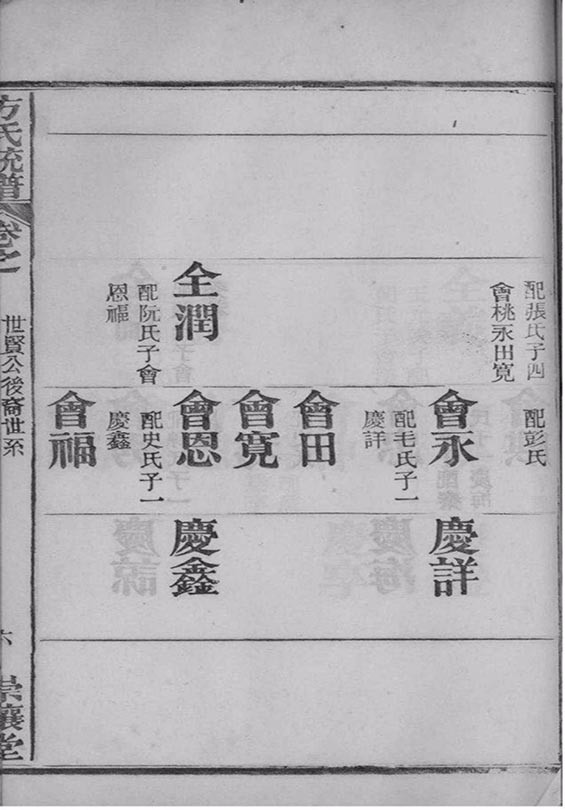 配張氏子四
會桃永田寬
全潤
配阮氏子會
恩福
配彭氏
會永
配毛氏子一
慶詳
會田
會寬
會恩
配史氏子一
慶鑫
會福
慶詳
慶鑫
方氏統譜
卷之一
世賢公後裔世系
六
崇讓堂